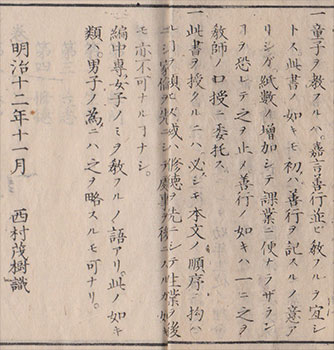 一童子ヲ敎フルハ、嘉言善行並ビ敎フルヲ宜シ
トス、此書ノ如キモ初ハ善行ヲ記スルノ意ア
リシガ、紙數ノ增加シテ課業ニ便ナラザラン
ヿヲ恐レテ之ヲ止ム、善行ノ如キハ一ニ之ヲ
敎師ノ口授ニ委托ス。
一此書ヲ授クルニハ、必シモ本文ノ順序ニ拘ハ
ルヿヲ須ヒズ、或ハ修德ヲ先ニシテ生業ヲ後
ニシ、家倫ヲ先ニシテ處事ヲ後ニスルガ如キ
モ亦不可ナルヿナシ。
編中專女子ノミヲ敎フルノ語アリ。此ノ如キ
類ハ、男子ノ爲ニハ之ヲ略スルモ可ナリ。
明治十二年十一月 西村茂樹識